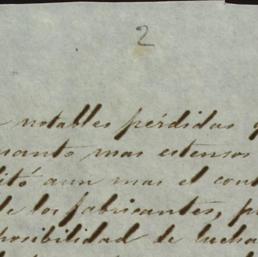 2
notables pérdidas
mas estensos
aun mas el
de los fabricantes,
posibilidad de lucha